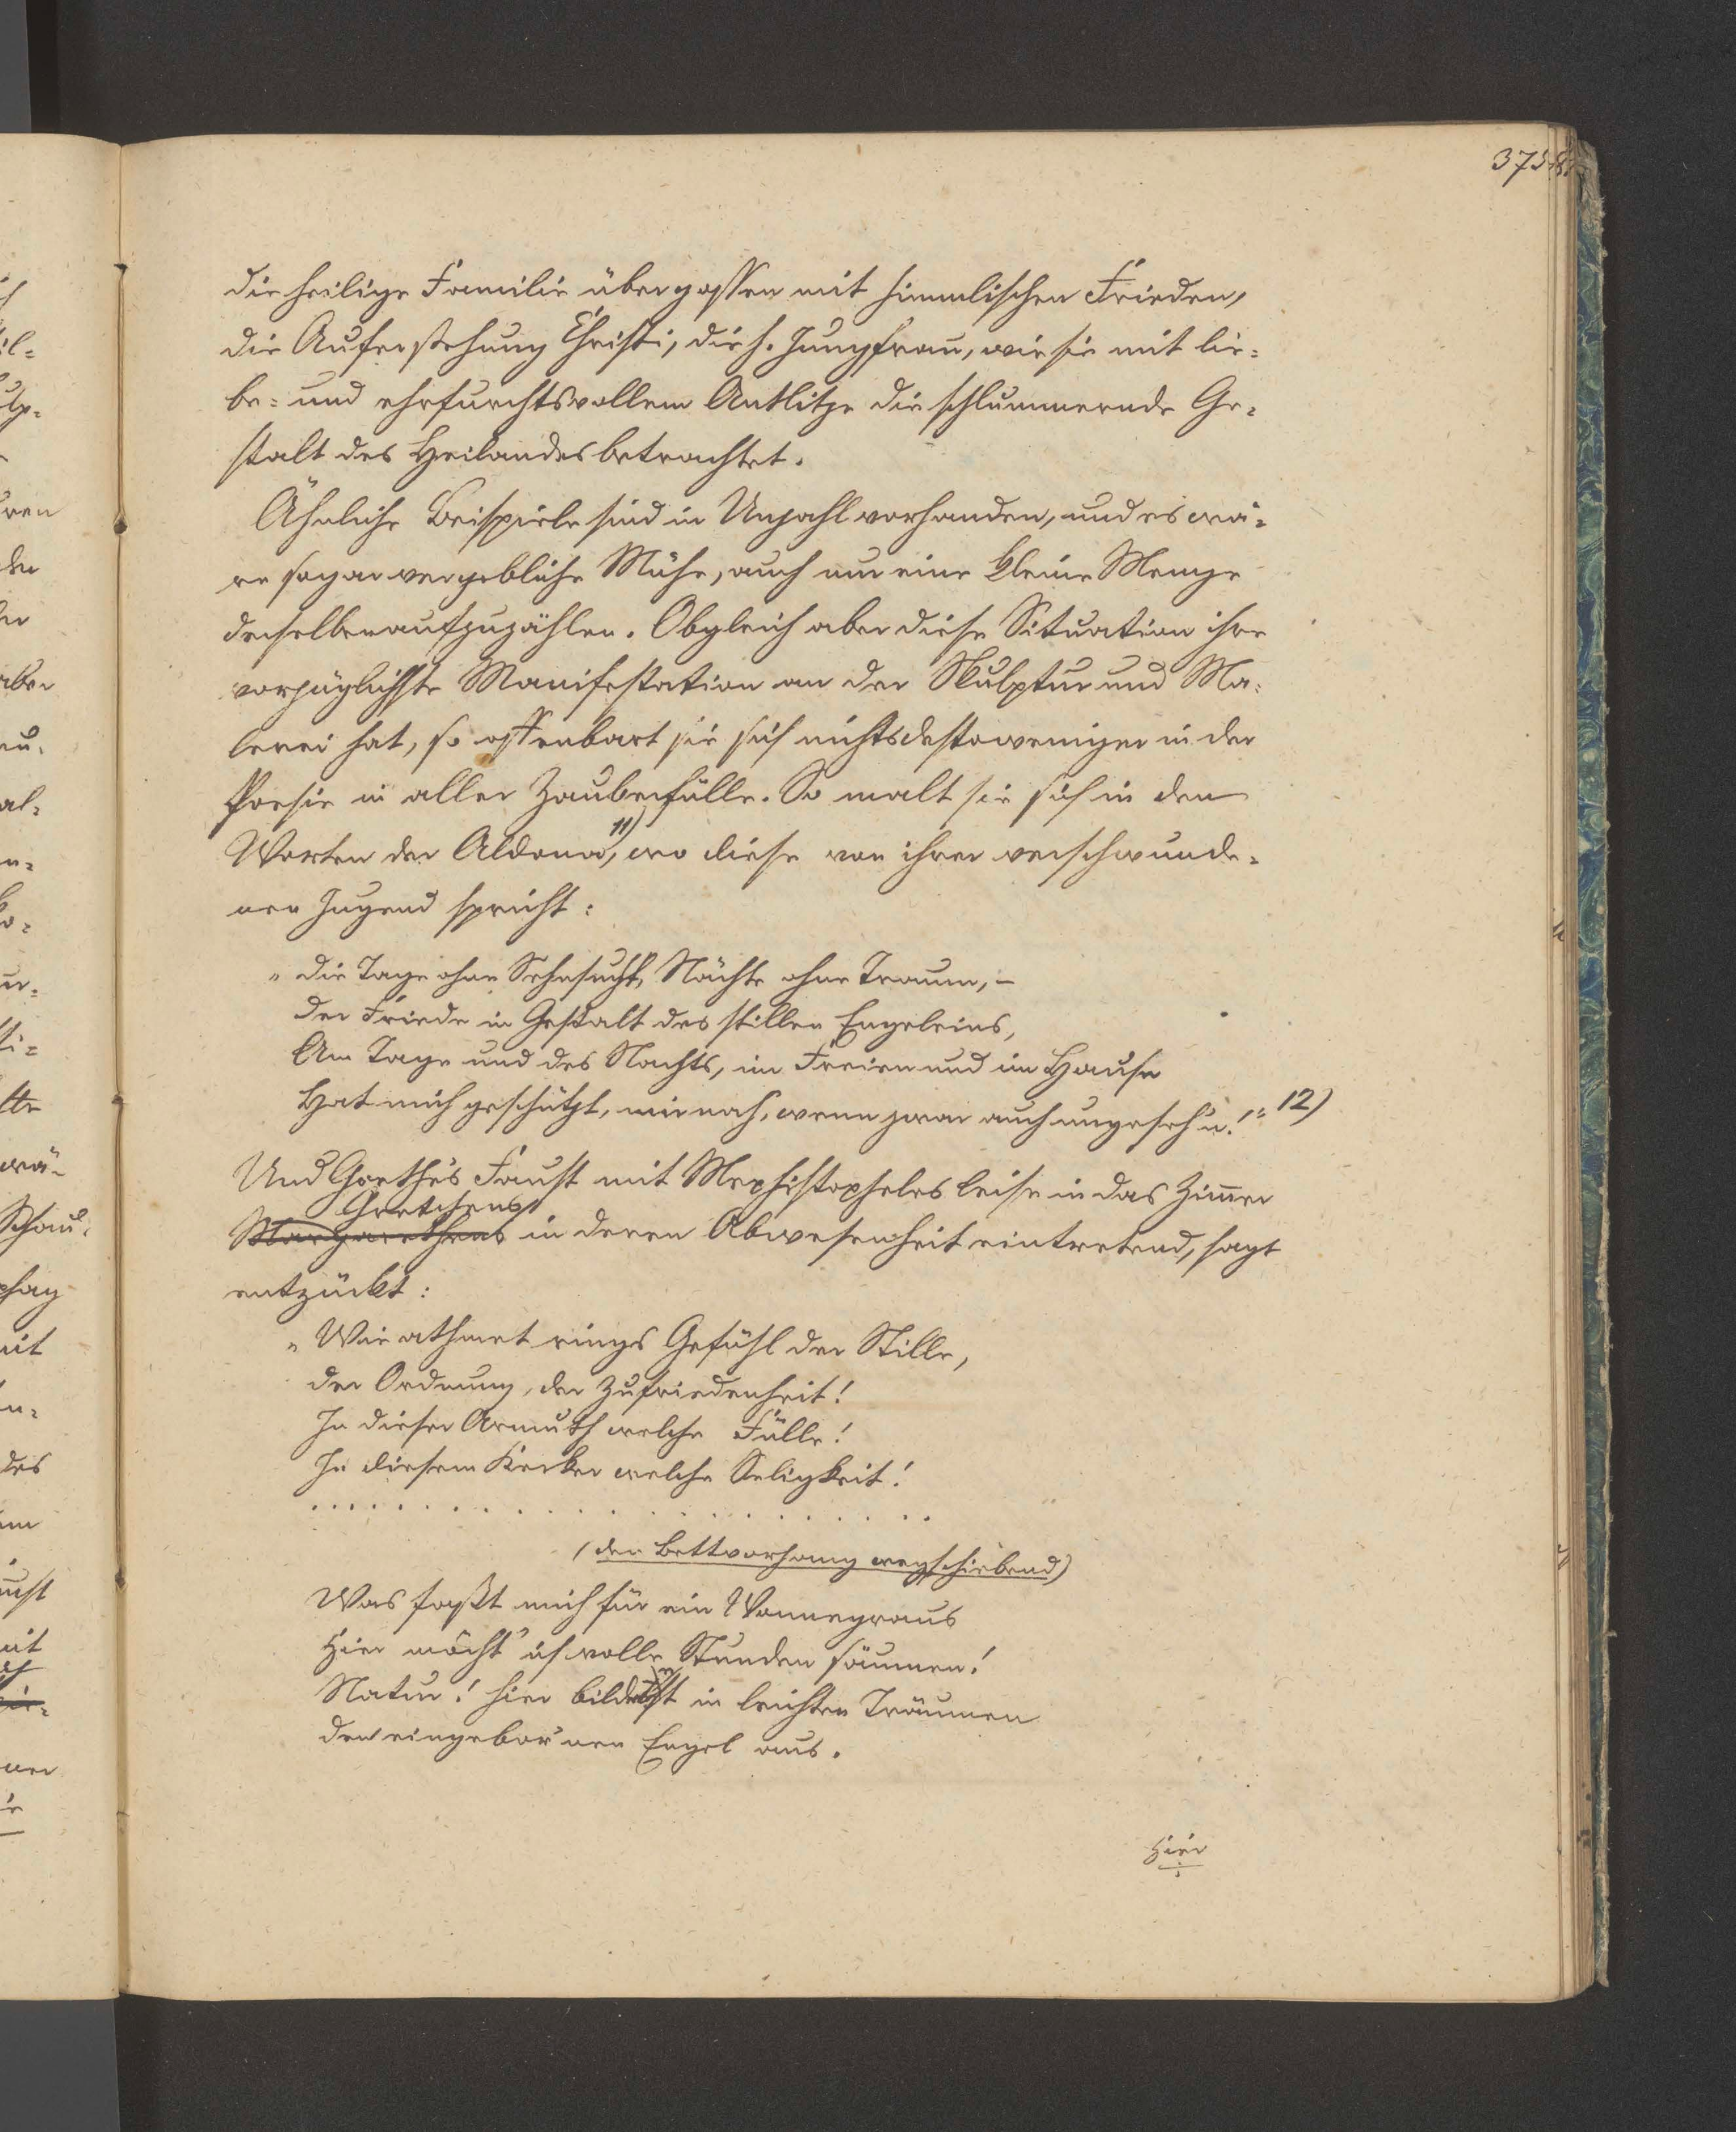 375
die heilige Familie übergossen mit himmlischen Frieden,
die Auferstehung Christi, die h. Jungfrau, wie sie mit lie-
be- und ehrfurchtsvollem Antlitze die schlummernde Ge-
stalt des Heilandes betrachtet.
Ähnliche Beispiele sind in Unzahl vorhanden, und es wä-
re sogar vergebliche Mühe, auch nur eine kleine Menge
derselben aufzuzählen. Obgleich aber diese Situation ihre
vorzüglichste Manifestation an der Skulptur und Ma-
lerei hat, so offenbart sie sich nichtsdestoweniger in der
Poesie in aller Zauberfülle. So malt sie sich in den
Worten der Aldona, 11) wo diese von ihrer verschwunde-
nen Jugend spricht:
"Die Tage ohne Sehnsucht, Nächte ohne Traum, –
Der Friede in Gestalt des stillen Engeleins,
Am Tage und des Nachts, im Freien und im Hause
Hat mich geschützt, mir nah, wenn zwar auch ungeseh'n!" 12)
Und Goethe's Faust mit Mephistopheles leise in das Zimmer
Gretchens
Margarethens in deren Abwesenheit eintretend, sagt
entzückt:
"Wie athmet rings Gefühl der Stille,
der Ordnung, der Zufriedenheit!
In dieser Armuth welche Fülle!
In diesem Kerker welche Seligkeit!
. . . . . . . . . . . . . . . . . . . . .
(den Bettvorhang wegschiebend)
Was faßt mich für ein Wonnegraus
Hier möcht' ich volle Stunden säumen!
Natur! hier bildetest in leichten Träumen
den eingebor'nen Engel aus.
Hier